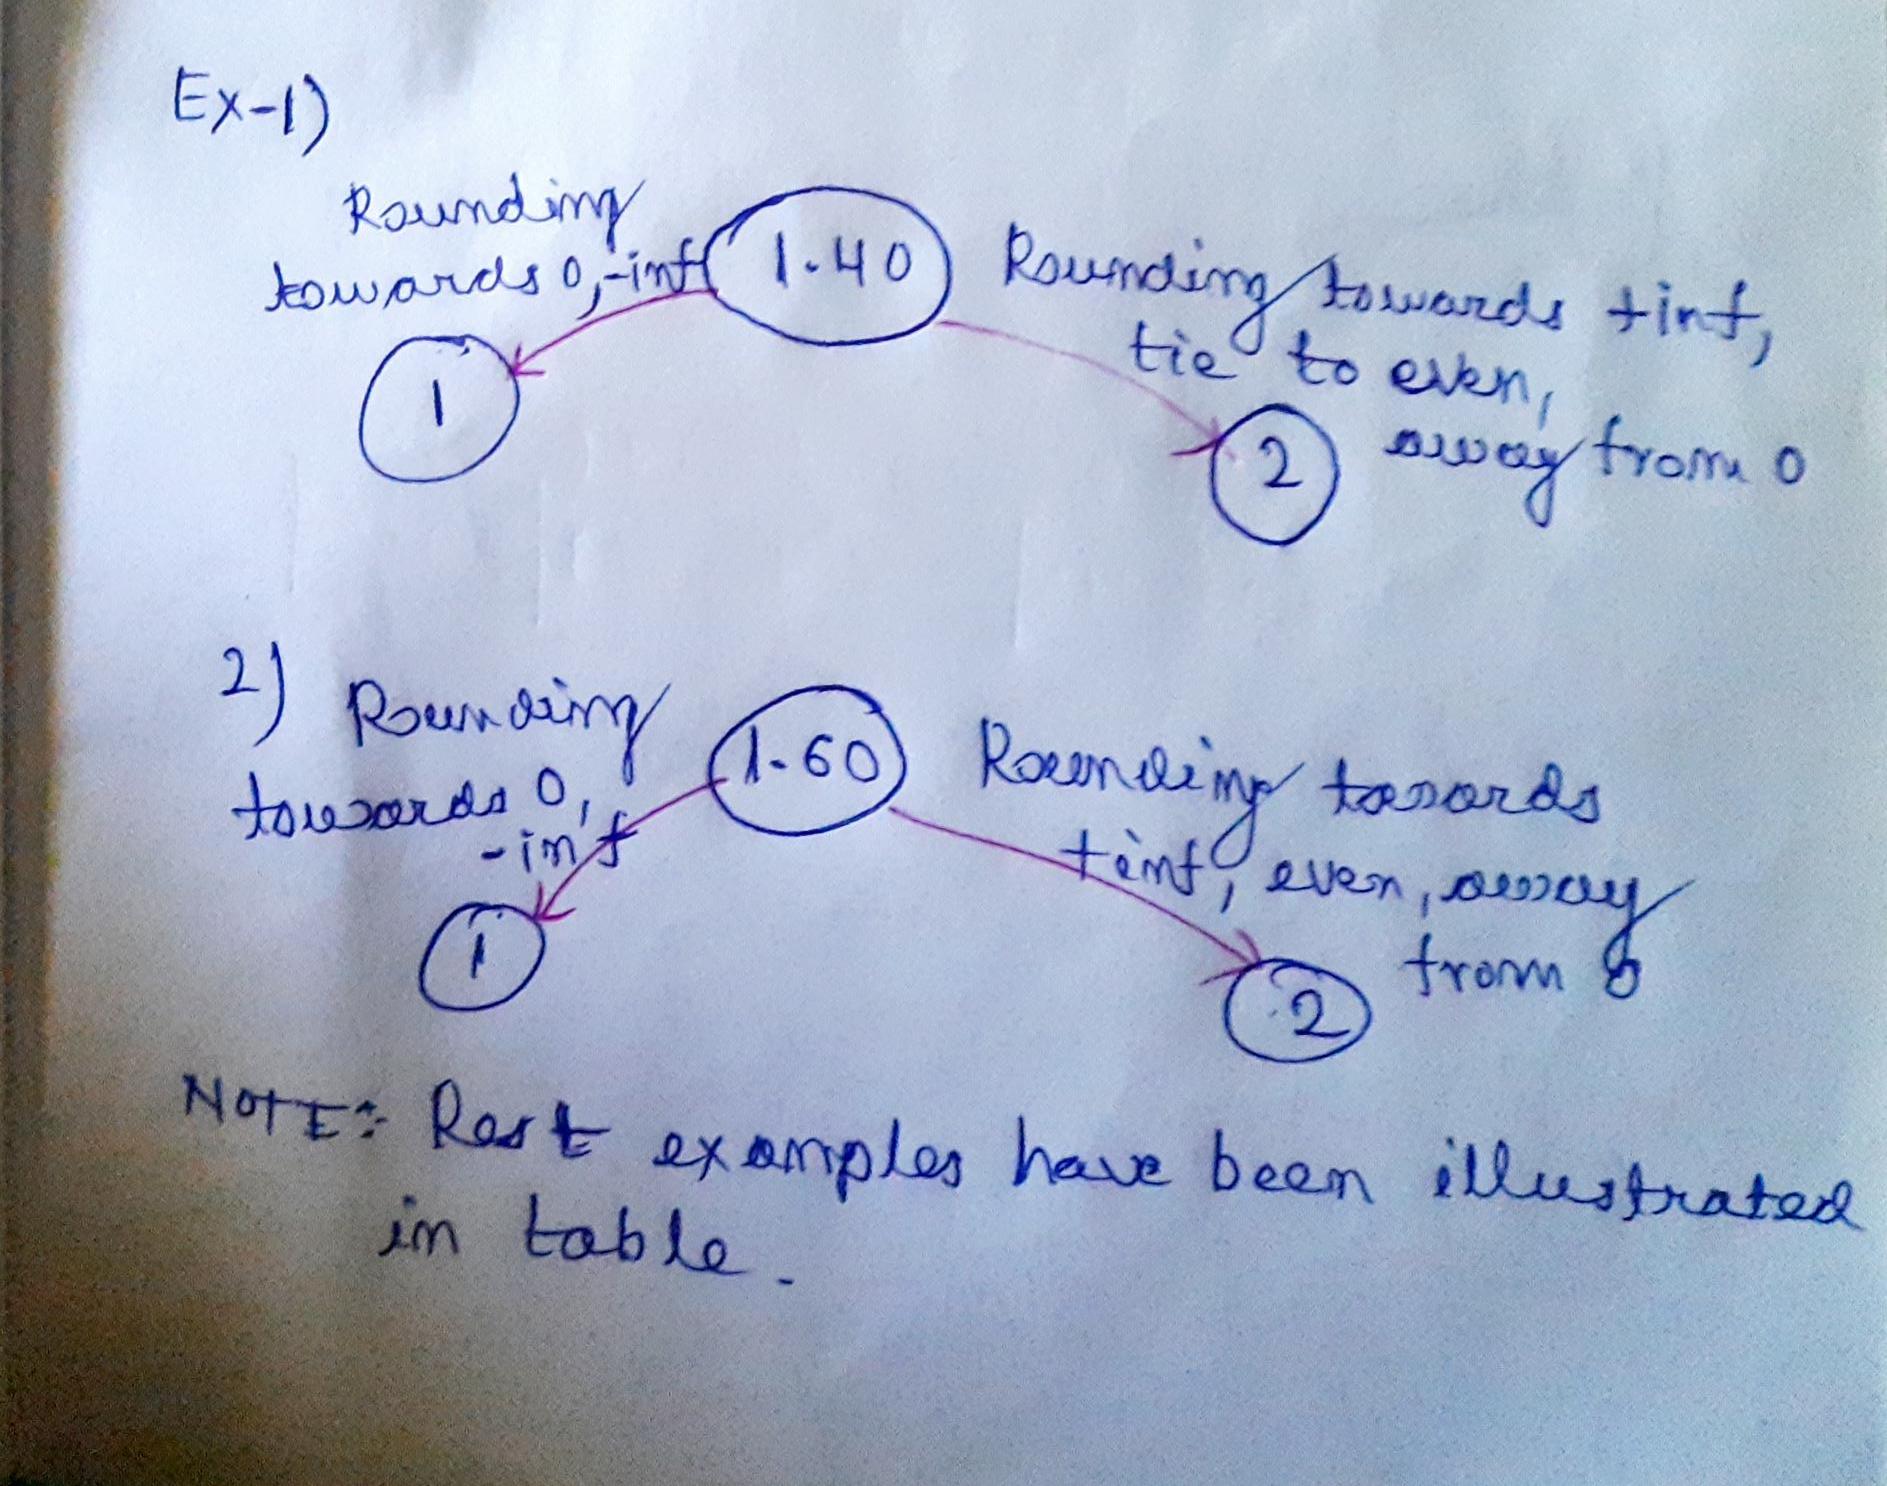 Ex-1)
Rounding
towards 0, -inf
1.40
Rounding towards +inf,
tie to even,
away from 0
1
2
2)
Rounding
towards 0,
-inf
1.60
Rounding towards
+inf, even, away
from 0
1
2
NOTE: Rest examples have been illustrated
in table.